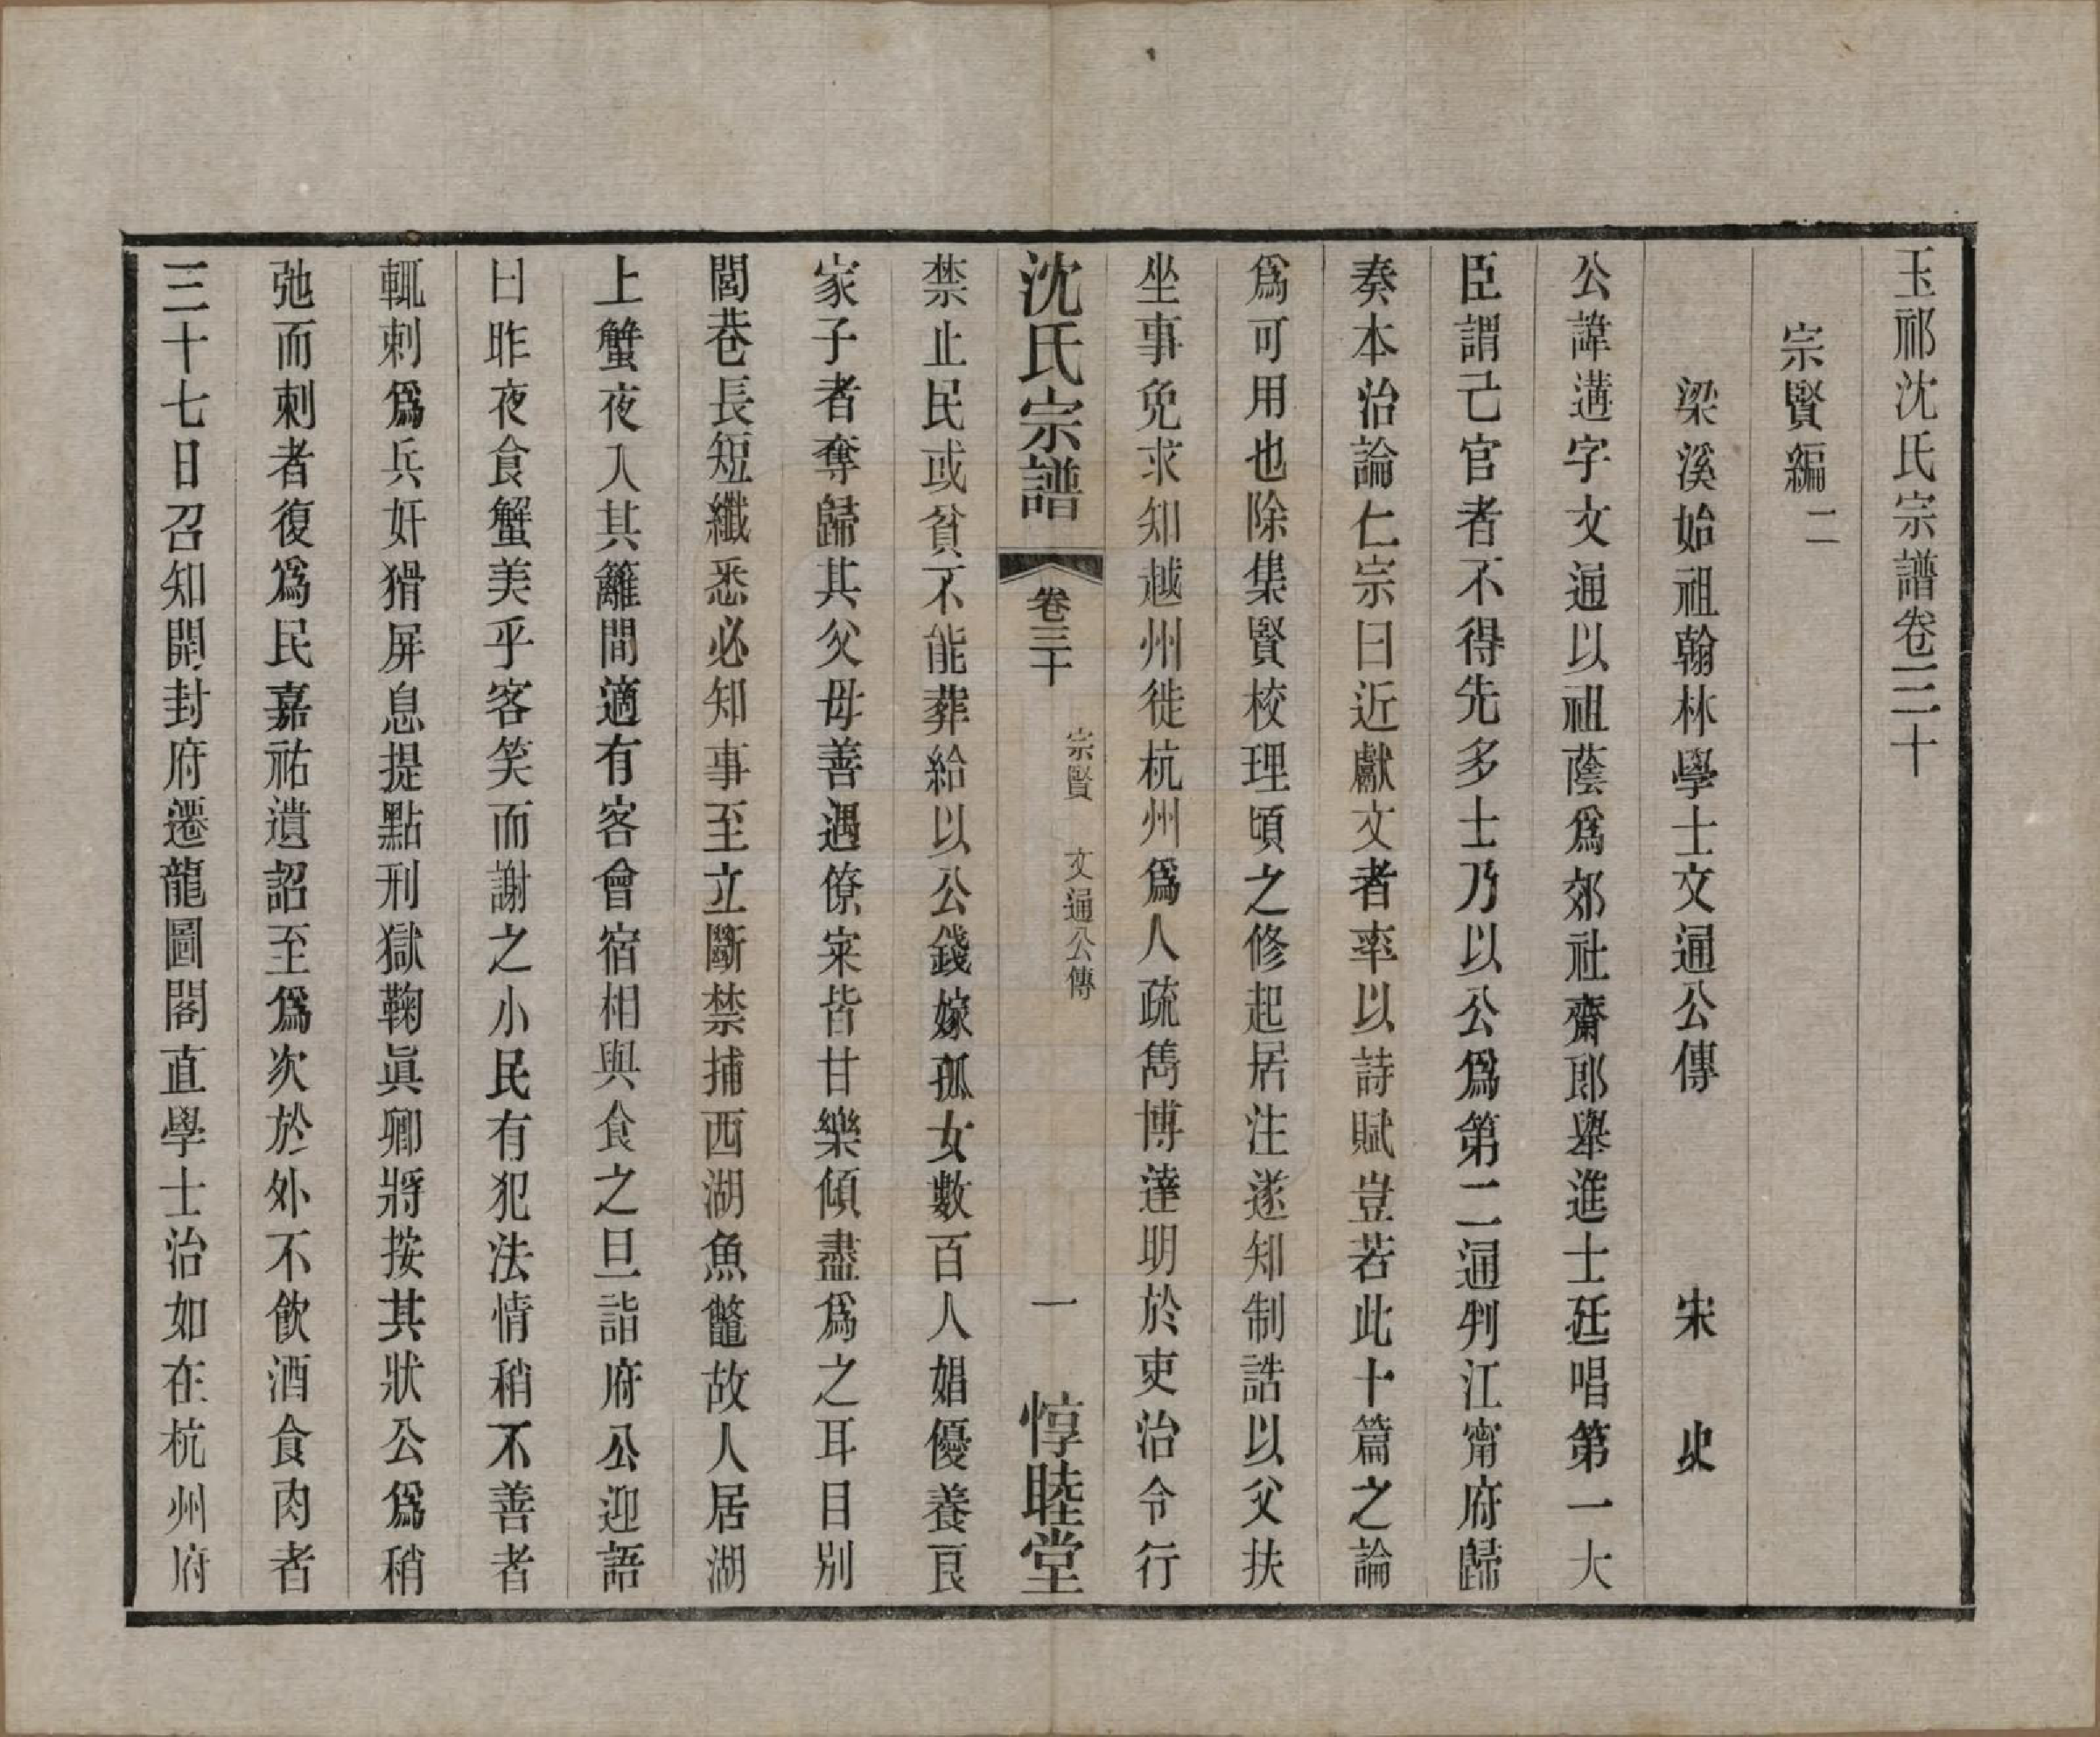 玉祁沈氏宗譜卷三十
宗賢編 二
梁溪始祖翰林學士文通公傳 宋史
公諱遘字文通以祖蔭爲郊社齋郎舉進士廷唱第一大
臣謂己官者不得先多士乃以公爲第二通判江甯府歸
奏本治論仁宗曰近獻文者率以詩賦豈若此十篇之論
爲可用也除集賢校理頃之修起居注遂知制誥以父扶
坐事免求知越州徙杭州爲人疏雋博達明於吏治令行
沈氏宗譜 卷三十 宗賢 文通公傳 一 惇睦堂
禁止民或貧不能葬給以公錢嫁孤女數百人娼優養良
家子者奪歸其父母善遇僚寀皆甘樂傾盡爲之耳目別
閭巷長短纖悉必知事至立斷禁捕西湖魚鼈故人居湖
上蟹夜入其籬間適有客會宿相與食之旦詣府公迎語
曰昨夜食蟹美乎客笑而謝之小民有犯法情稍不善者
輒刺爲兵奸猾屏息提點刑獄鞠眞卿將按其狀公爲稍
弛而刺者復爲民嘉祐遺詔至爲次於外不飲酒食肉者
三十七日召知開封府遷龍圖閣直學士治如在杭州府